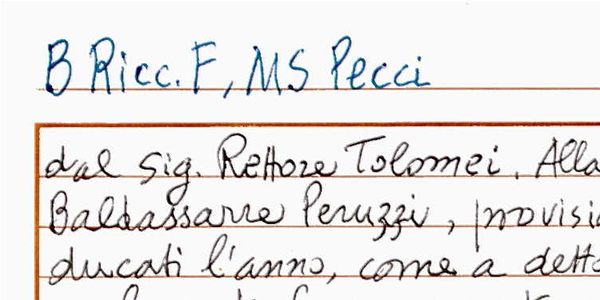 B Ricc. F, MS Pecci
dal Sig. Rettore Tolomei. Alla
Baldassarre Peruzzi, provisi
ducati l'anno, come a detto